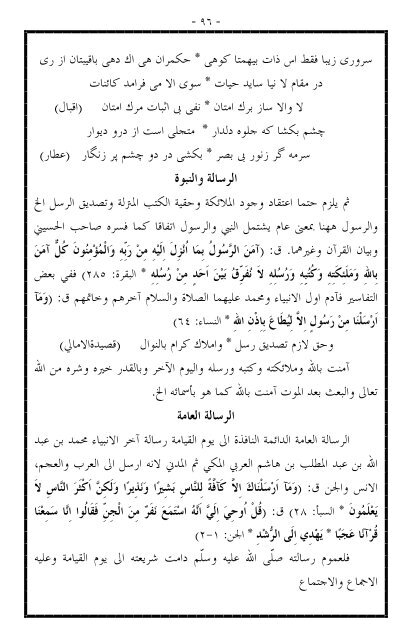 - ٩٦ -
سروری زیبا فقط اس ذات بیهمتا کوهی * حکمران هی اك دهی باقیبتان از ری
در مقام لا نیا ساید حیات * سوی الا می فرامد کائنات
لا والا ساز برك امتان * نفی بی اثبات مرك امتان (اقبال)
چشم بکشا که جلوه دلدار * متجلی است از درو دیوار
سرمه گر زنور بی بصر * بکشی در دو چشم پر زنگار (عطار)
الرسالة والنبوة
ثم يلزم حتما اعتقاد وجود الملائكة وحقية الكتب المنزلة وتصديق الرسل الخ
والرسول ههنا بمعنى عام يشتمل النبي والرسول اتفاقا كما فسره صاحب الحسيني
وبيان القرآن وغيرهما. ق: (آمَنَ الرَّسُولُ بِمَا اُنْزِلَ اِلَيْهِ مِنْ رَبِّهِ وَالْمُؤْمِنُونَ كُلٌّ آمَنَ
بِاللهِ وَمَلٰئِكَتِهِ وَكُتُبِهِ وَرُسُلِهِ لاَ نُفَرِّقُ بَيْنَ اَحَدٍ مِنْ رُسُلِهِ * البقرة: ٢٨٥) ففي بعض
التفاسير فآدم اول الانبياء ومحمد عليهما الصلاة والسلام آخرهم وخاتمهم ق: (وَمَآ
اَرْسَلْنَا مِنْ رَسُولٍ اِلاَّ لِيُطَاعَ بِاِذْنِ اللهِ * النساء: ٦٤)
وحق لازم تصديق رسل * واملاك كرام بالنوال (قصيدةالامالي)
آمنت بالله وملائكته وكتبه ورسله واليوم الآخر وبالقدر خيره وشره من الله
تعالى والبعث بعد الموت آمنت بالله كما هو بأسمائه الخ.
الرسالة العامة
الرسالة العامة الدائمة النافذة الى يوم القيامة رسالة آخر الانبياء محمد بن عبد
الله بن عبد المطلب بن هاشم العربي المكي ثم المدني لانه ارسل الى العرب والعجم،
الانس والجن ق: (وَمَآ اَرْسَلْنَاكَ اِلاَّ كَآفَّةً لِلنَّاسِ بَشِيرًا وَنَذِيرًا وَلَكِنَّ اَكْثَرَ النَّاسِ لاَ
يَعْلَمُونَ * السبأ: ٢٨) ق: (قُلْ اُوحِيَ اِلَيَّ اَنَّهُ اسْتَمَعَ نَفَرٌ مِنَ الْجِنِّ فَقَالُوا اِنَّا سَمِعْنَا
قُرْآنًا عَجَبًا * يَهْدِي اِلَى الرُّشْدِ * الجن: ١-٢)
فلعموم رسالته صلّى الله عليه وسلّم دامت شريعته الى يوم القيامة وعليه
الاجماع والاجتماع